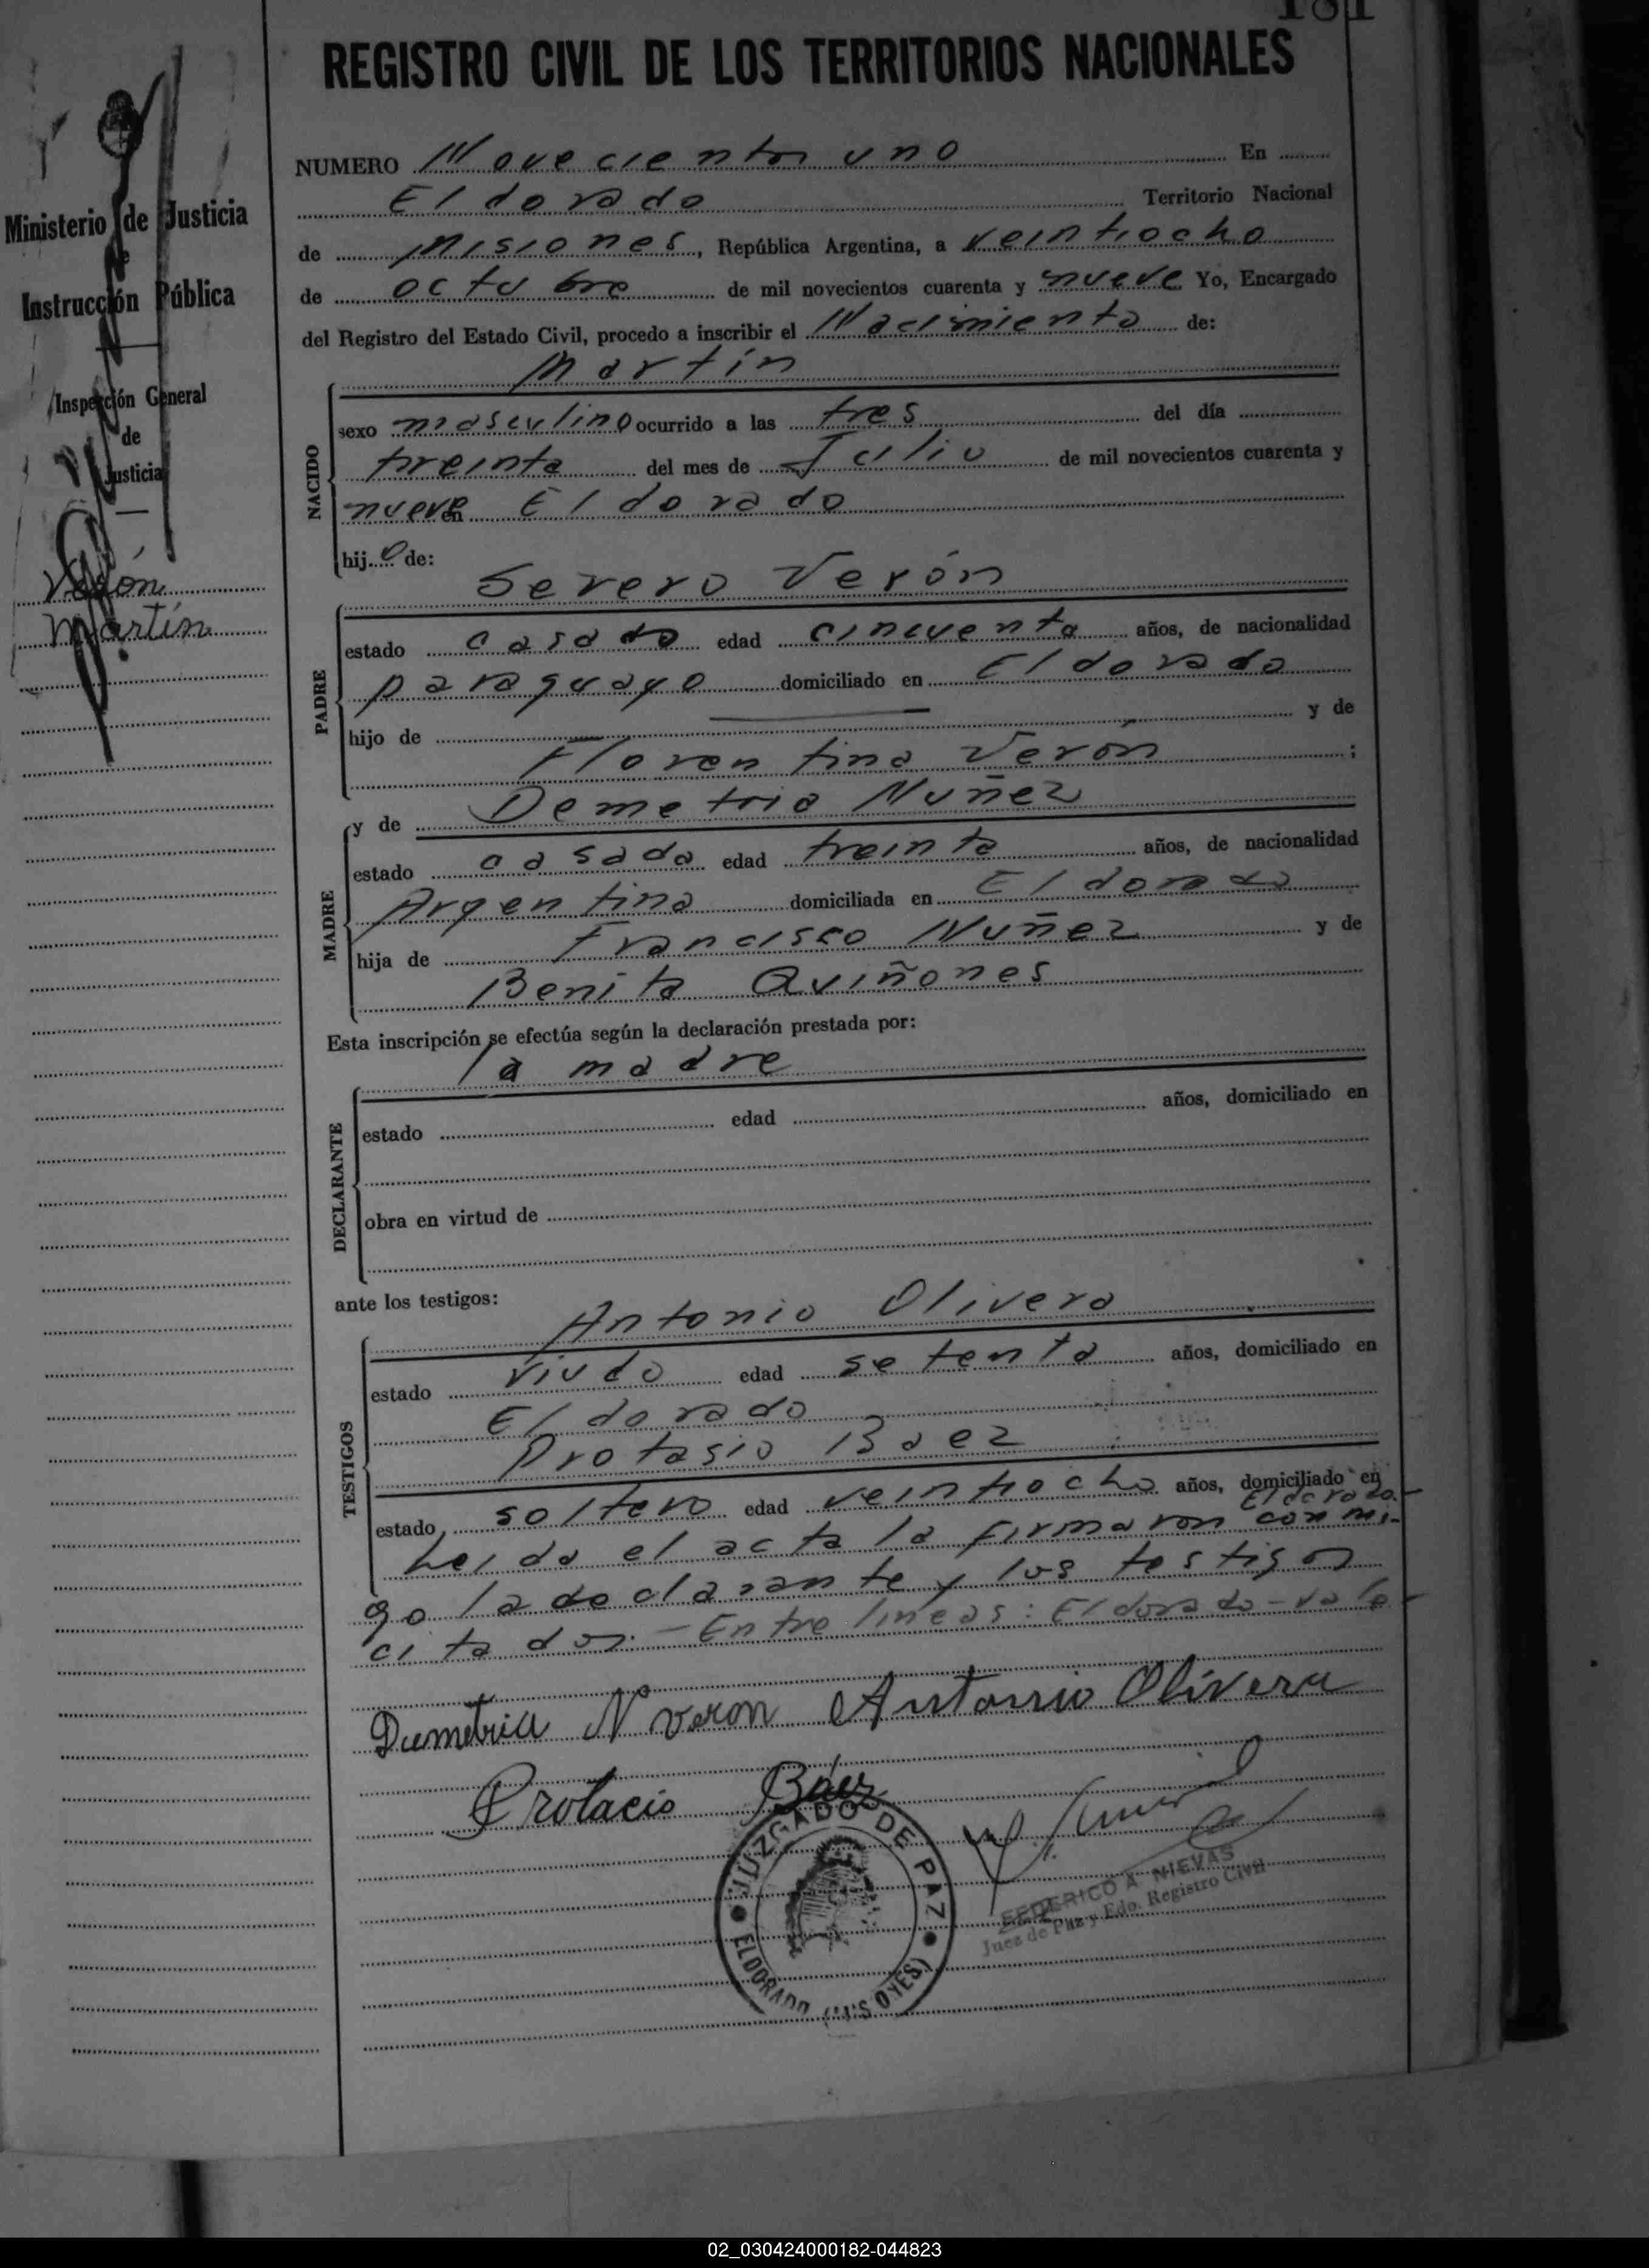 181
REGISTRO CIVIL DE LOS TERRITORIOS NACIONALES
Ministerio de Justicia
e
Instrucción Pública
Inspección General
de
Justicia
Verón
Martín
NUMERO Novecientos uno En
Eldorado Territorio Nacional
de Misiones, República Argentina, a veintiocho
de octubre de mil novecientos cuarenta y nueve Yo, Encargado
del Registro del Estado Civil, procedo a inscribir el Nacimiento de:
Martín
NACIDO
sexo masculino ocurrido a las tres del día
treinta del mes de Julio de mil novecientos cuarenta y
nueve en Eldorado
hijo de:
Severo Verón
PADRE
estado casado edad cincuenta años, de nacionalidad
paraguayo domiciliado en Eldorado
hijo de y de
Florentina Verón ;
MADRE
y de Demetria Nuñez
estado casada edad treinta años, de nacionalidad
Argentina domiciliada en Eldorado
hija de Francisco Nuñez y de
Benita Quiñones
Esta inscripción se efectúa según la declaración prestada por:
la madre
DECLARANTE
estado edad años, domiciliado en
obra en virtud de
ante los testigos:
Antonio Olivera
TESTIGOS
estado viudo edad setenta años, domiciliado en
Eldorado
Protasio Baez
estado soltero edad veintiocho años, domiciliado en
Eldorado.-
Leido el acta la firmaron conmi-
go la declarante y los testigos
citados.- Entre lineas: Eldorado - vale-
Demetria N Veron Antonio Olivera
Protacio Báez
JUZGADO DE PAZ
ELDORADO (MISIONES)
FEDERICO A. NIEVAS
Juez de Paz y Edo. Registro Civil
02_030424000182-044823